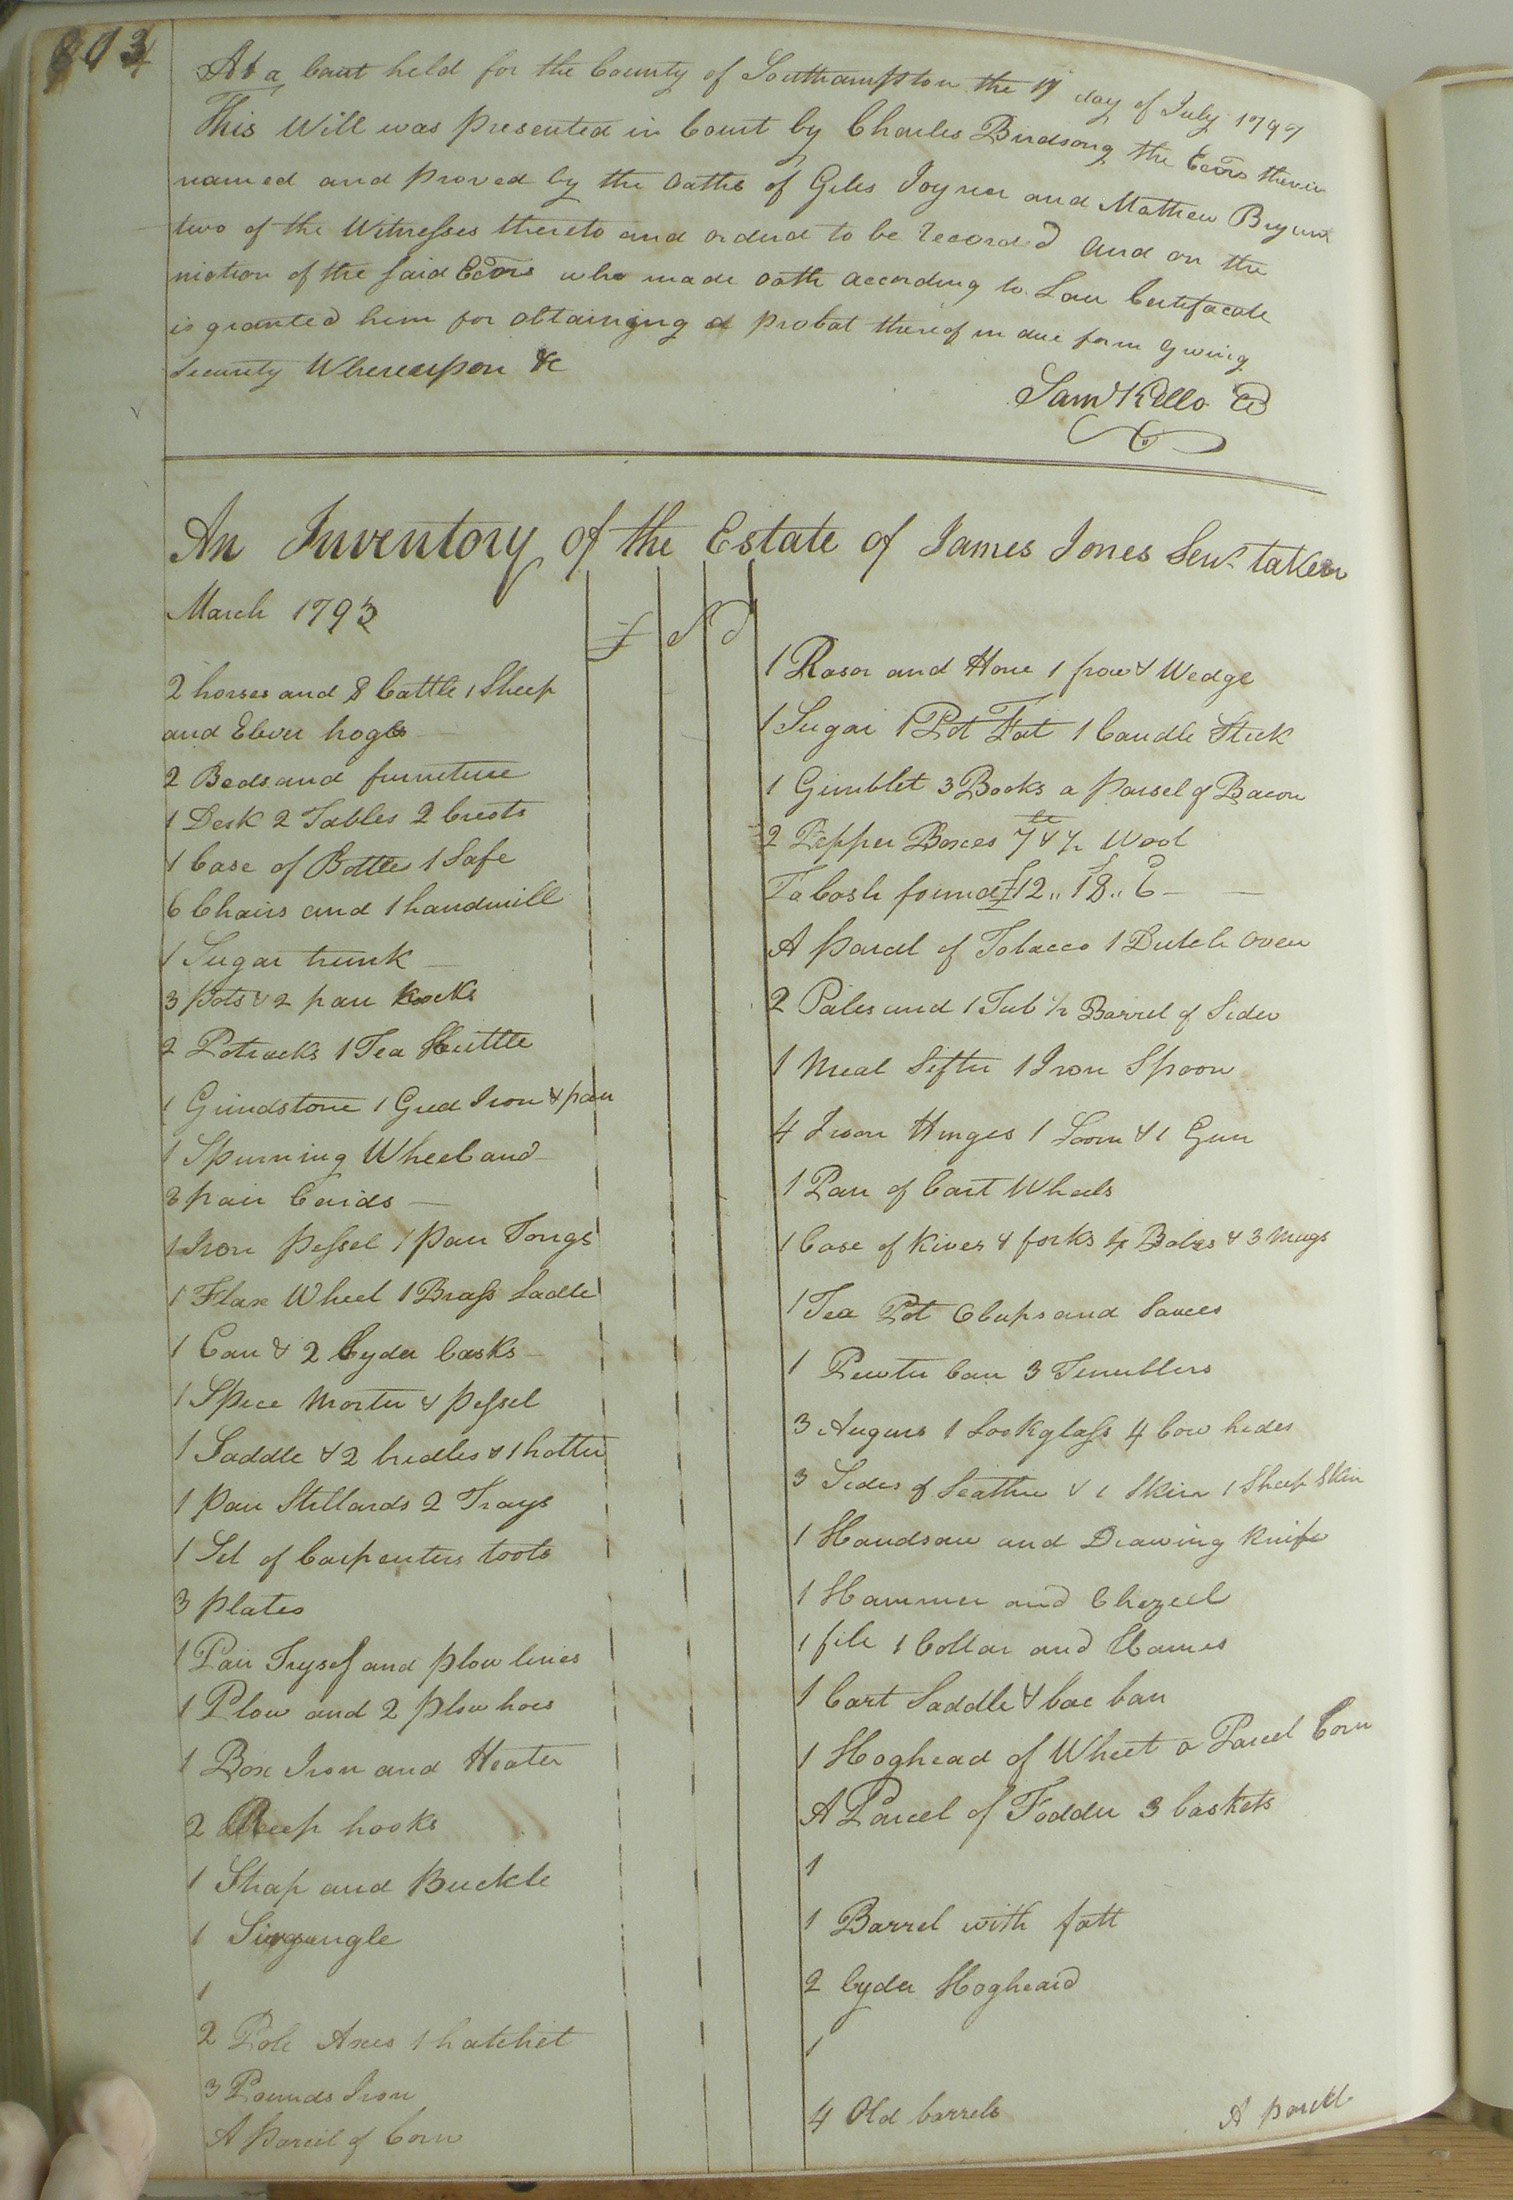 At a Court held for the County of Southampton the 17 day of July 1797
This Will was presented in Court by Charles Birdsong the Ecors therein
named and proved by the oaths of Giles Joyner and Mathew Bryant
two of the Witnesses thereto and orderd to be recorded And on the
motion of the said Ecors who made oath according to Law Certificate
is granted him for obtaining a probat thereof in due form giving
Security Whereupon &c
Saml Kello CC
An Inventory of the Estate of James Jones Senr taken
March 1793
£ S d
2 horses and 8 Cattle 1 Sheep
and Eleven hogs
2 Beds and furniture
1 Desk 2 Tables 2 Chests
1 Case of Bottles 1 Safe
6 Chairs and 1 handmill
1 Sugar trunk
3 Pots & 2 pair hooks
2 Potracks 1 Tea Kittle
1 Grindstone 1 Gred Iron & pan
1 Spinning Wheel and
2 pair Cards
1 Iron Pessel 1 Pair Tongs
1 Flax Wheel 1 Brass Ladle
1 Can & 2 Cyder Casks
1 Spice Morter & Pessel
1 Saddle & 2 bridles & 1 holter
1 Pair Stillards 2 Trays
1 Set of Carpenters tools
3 Plates
1 Pair and plow lines
1 Plow and 2 plow hoes
1 Box Iron and Heater
2 Reep hooks
1 Strap and Buckle
1 Sirgungle
1
2 Pole Axes 1 hatchet
3 Pounds Iron
A Parcil of Corn
1 Rasor and Hone 1 frow & Wedge
1 Sugar 1 Pot Fat 1 Candle Stick
1 Gimblet 3 Books a Parsel of Bacon
2 Pepper Boxes 7 lb & ½ Wool
To Cash found £12 .. 18 .. 6
A Parcel of Tobacco 1 Dutch Oven
2 Pales and 1 Tub ½ Barrel of Sider
1 Meal Sifter 1 Iron Spoon
4 Iron Hinges 1 Loom & 1 Gun
1 Pair of Cart Wheels
1 Case of Kives & forks & 3 Mugs
1 Tea Pot 6 Cups and Sauces
1 Pewter Can 3 Tumblers
3 Augurs 1 Lookglass 4 Cow hides
3 Sides of Leather & 1 Skin 1 Sheep Skin
1 Handsaw and Drawing Knife
1 Hammer and Chezeel
1 file 1 Collar and Hames
1 Cart Saddle & bac ban
1 Hoghead of Wheet a Parcel Corn
A Parcel of Fodder 3 baskets
1
1 Barrel with fatt
2 Cyder Hogheaid
1
4 Old barrels
A parcel